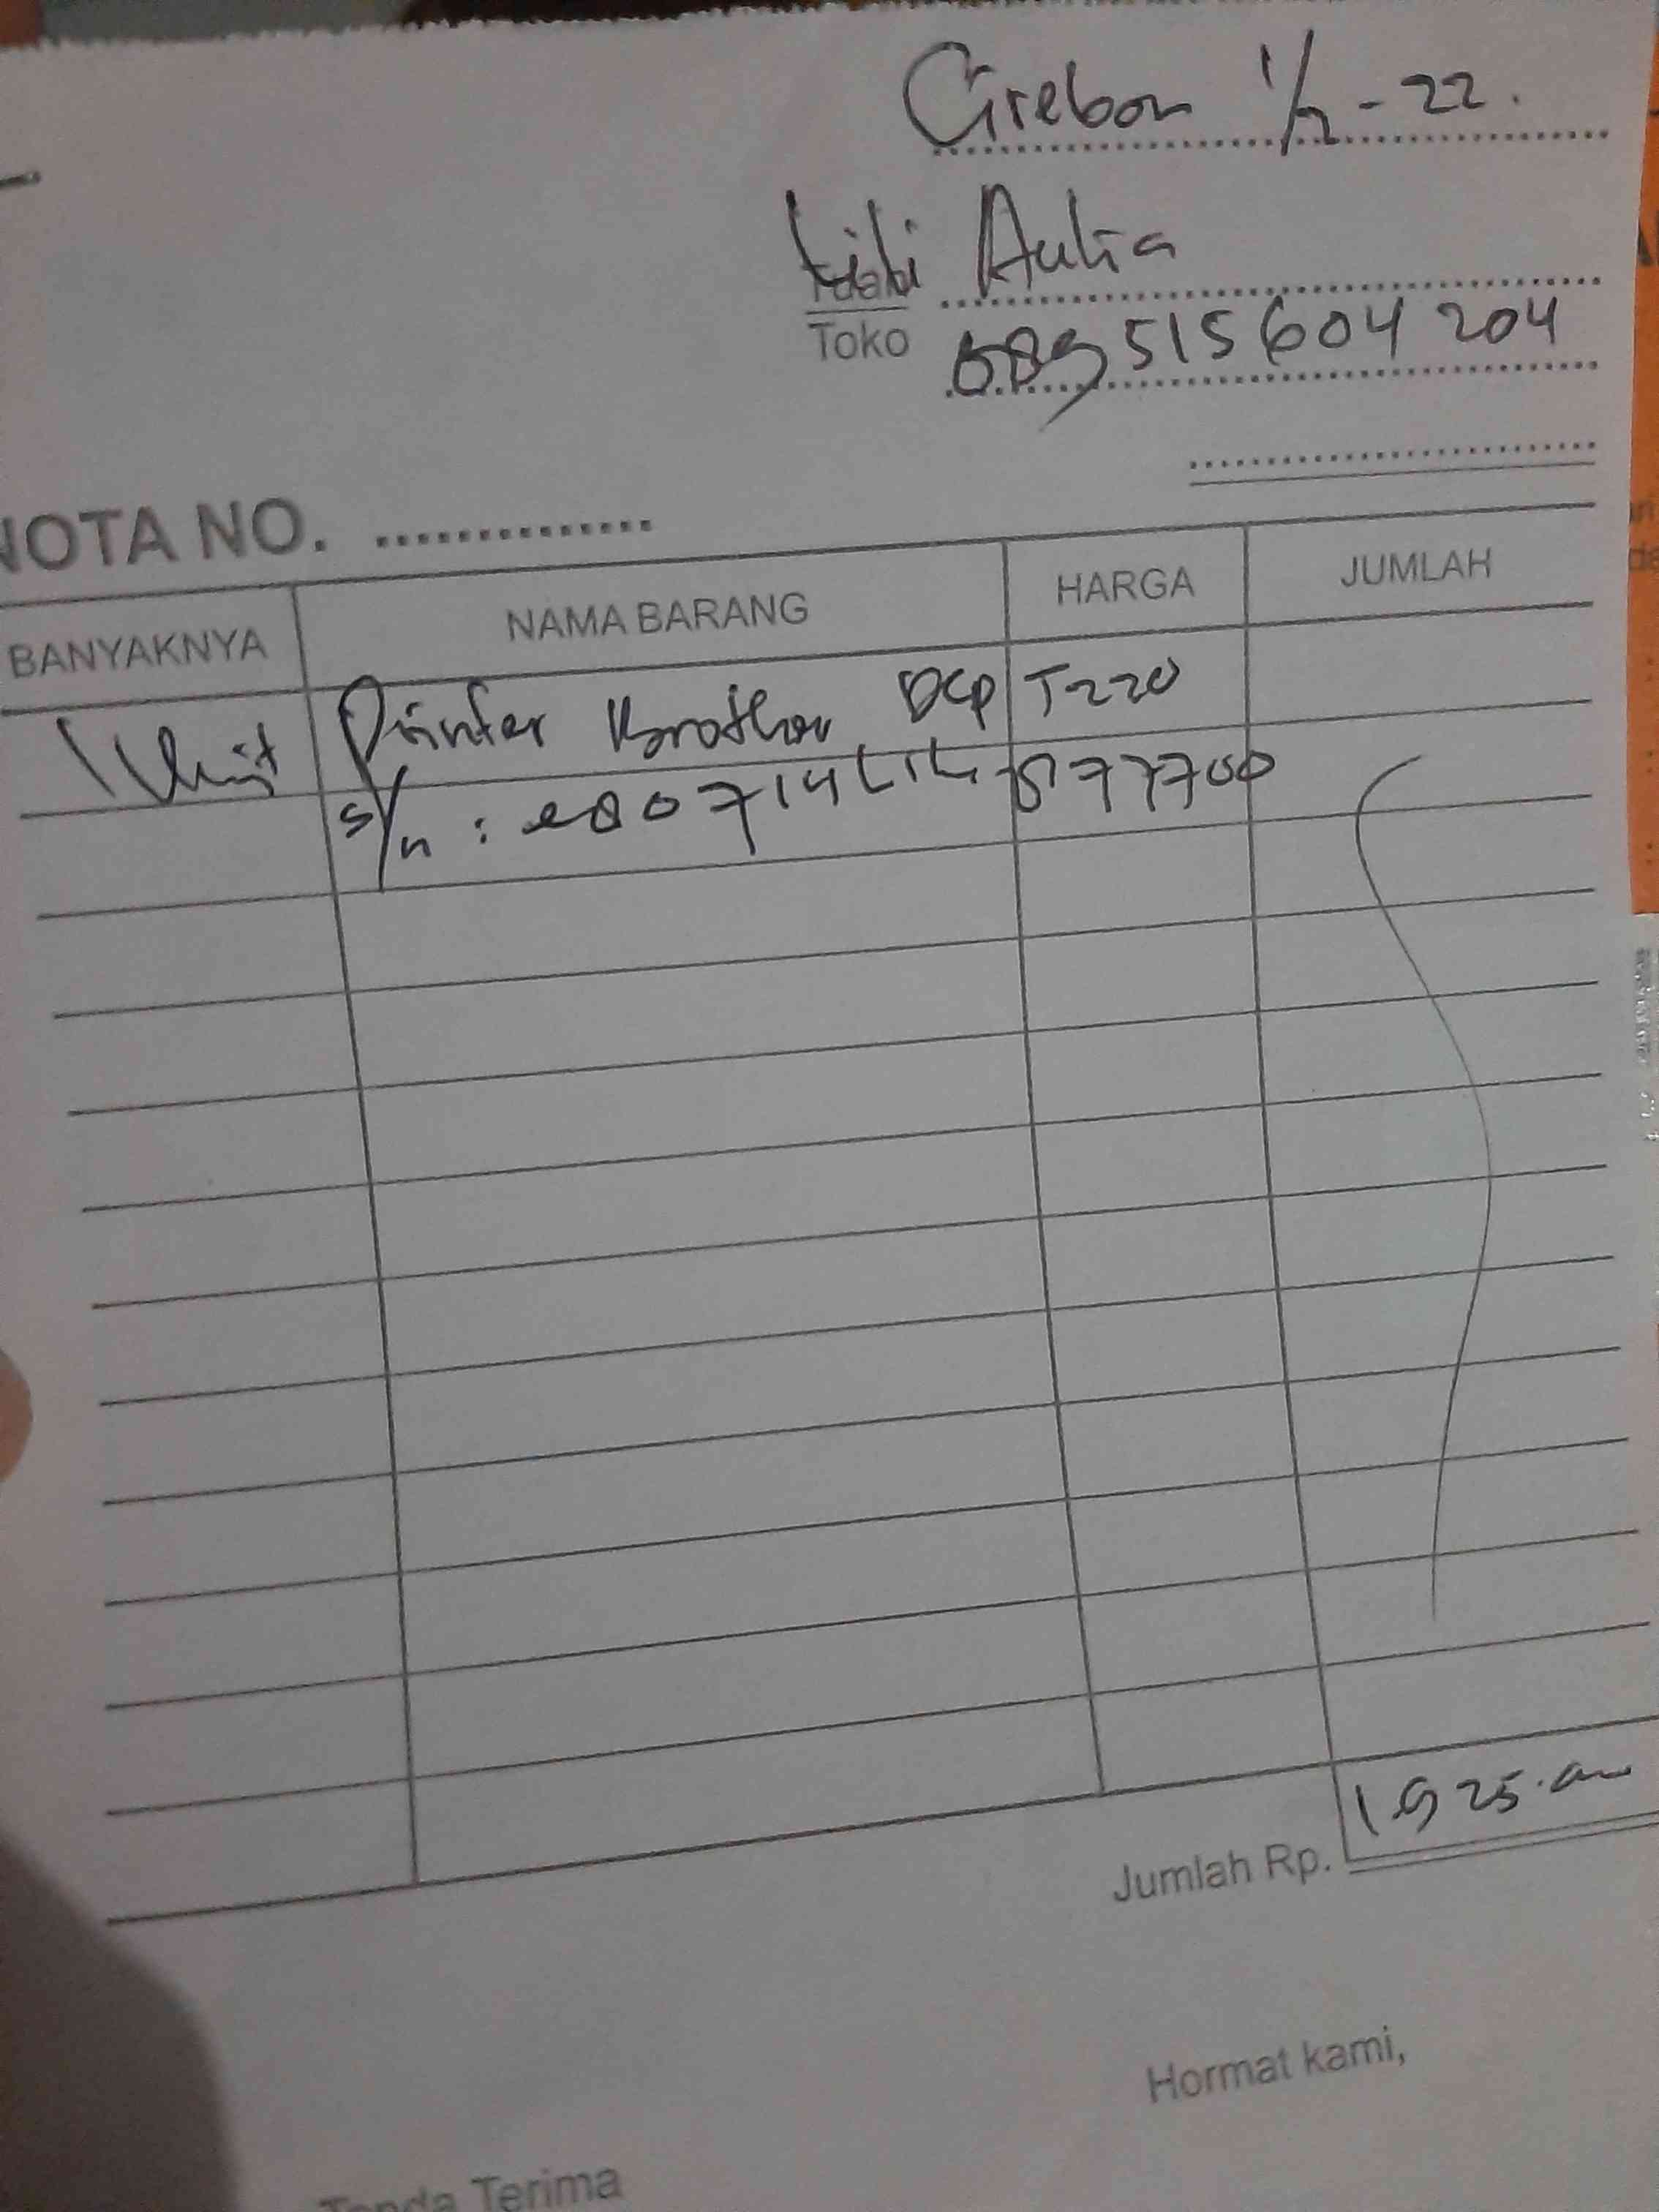 Cirebon 1/2 - 22.
Aulia
Toko 089515604204
NOTA NO. ..............
BANYAKNYA NAMA BARANG HARGA JUMLAH
1 Unit Printer Brother DCP T220
S/n :
Jumlah Rp. 1.925.000
Hormat kami,
Tanda Terima